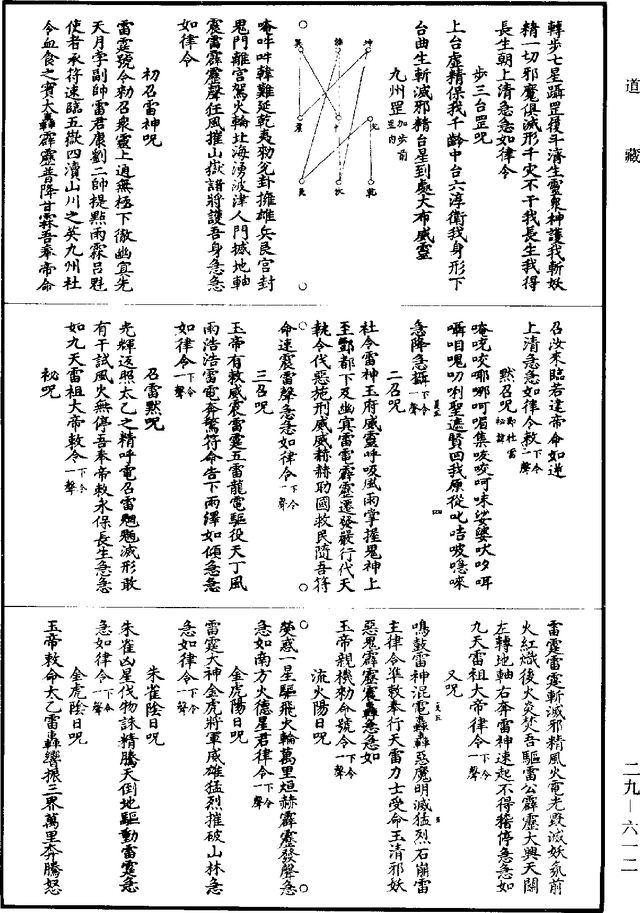 道藏
轉步七星躡罡履斗濟生靈衆神護我斬妖
精一切邪魔俱滅形千灾不干我長生我得
長生朝上清急急如律令
步三台罡咒
上台虛精保我千齡中台六淳衛我身形下
台曲生斬滅邪精台星到處大布威靈
九州罡加步前罡內
坤
離
巽
兌
中
震
乾
坎
艮
鬼門離宮駕火輪北海湧波津人門撼地軸
震雷霹靂聲狂風摧山嶽諸將護吾身急急
如律令
初召雷神咒
雷霆號令勑召衆靈上通無極下徹幽冥先
天月孛副帥雷君康劉二帥提點雨霖呂魁
使者承符速臨五嶽四瀆山川之英九州社
令血食之賓大轟霹靂普降甘霖吾奉帝命
召汝來臨若違帝命如逆
上清急急如律令敕下令一聲
默召咒即社雷秘諱
急降急攝下令一聲
二召咒
社令雷神玉府威靈呼吸風雨掌握鬼神上
至酆都下及幽冥雷電霹靂遷發嚴行代天
執令伐惡施刑威威赫赫助國救民隨吾符
命速震雷聲急急如律令下令一聲
三召咒
玉帝有敕威震雷霆五雷龍電驅役天丁風
雨浩浩雷電奔驚符命告下雨澤如傾急急
如律令下令一聲
召雷默咒
光輝返照太乙之精呼電召雷魈魈滅形敢
有干試風火無停吾奉帝敕永保長生急急
如九天雷祖大帝敕令下令一聲
祕咒
雷霆雷霆斬滅邪精風火電光毀滅妖氛前
火紅熾後火炎焚吾驅雷公霹靂大興天關
左轉地軸右奔雷神速起不得稽停急急如
九天雷祖大帝律令下令一聲
又咒
鳴鼓雷神混電轟轟惡魔明滅猛烈石崩雷
主律令準敕奉行天雷力士受命玉清邪妖
惡鬼霹靂震轟急急如
玉帝親機勑命號令下令一聲
流火陽日咒
熒惑一星驅飛火輪萬里烜赫霹靂發聲急
急如南方火德星君律令下令一聲
金虎陽日咒
雷霆大神金虎將軍威雄猛烈摧破山林急
急如律令下令一聲
朱雀陰日咒
朱雀凶星伐物誅精騰天倒地驅動雷霆急
急如律令下令一聲
金虎陰日咒
玉帝敕命太乙雷轟響振三界萬里奔騰怒
二九—六一二